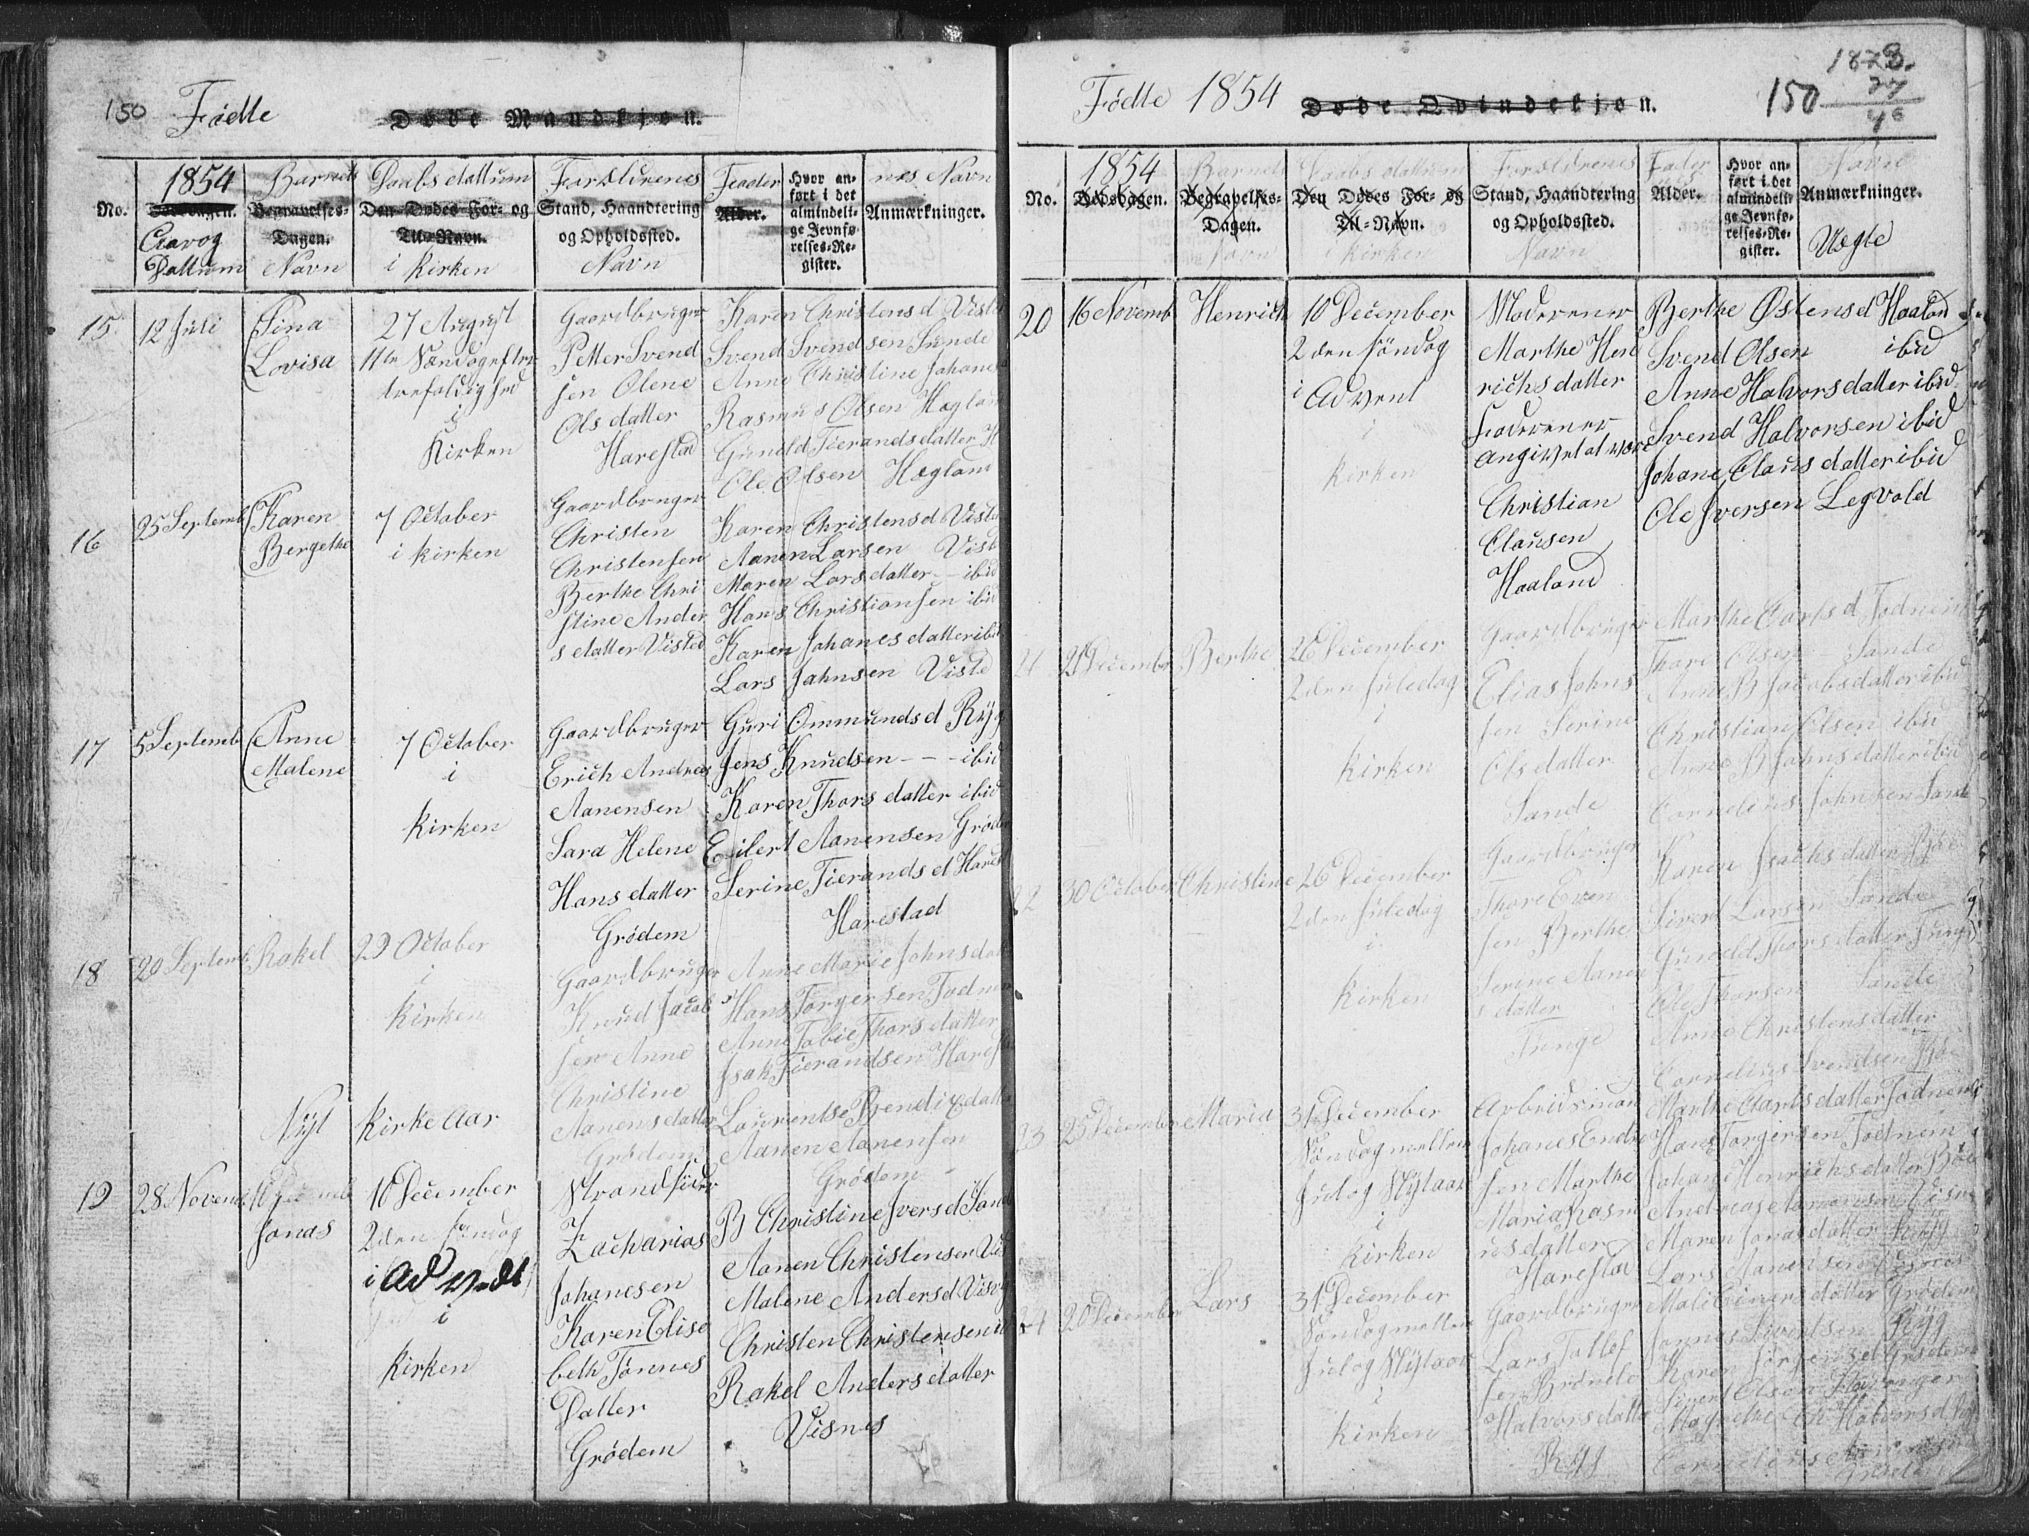 150 Fødte
Døde Mandkjøn.
No.
1854
Dødsdagen.
Aar og
Dattum
Barnets
Begravelses-
Dagen.
Navn
Daabs dattum
Den Dødes For- og
Til-Navn.
i kirken
Forældrenes
Stand, Haandtering
og Opholdssted.
Navn
Fadder
Alder.
Hvor an-
ført i det
almindeli-
ge Jevnfø-
relses-Re-
gister.
nes Navn
Anmærkninger.
15
12 Juli
Tina
Lovisa
27 August
11te Søndag efter
trefoldighed
i
Kirken
Gaardbruger
Petter Svend
sen Olene
Ols datter
Harestad
Karen Christens d Viste
Svend Svendsen Sunde
Anne Christine Johanes
Rasmus Olsen Hogland
Gunild Tierandsdatter H
Ole Olsen Hogland
16
25 Septemb
Karen
Bergethe
7 October
i kirken
Gaardbruger
Christen
Christensen
Berthe Chri
stine Anders
datter Visted
Karen Christensd Viste
Aanen Larsen Vist
Maren Larsdatter - ibid
Hans Christiansen ibid
Karen Johanes datter ibid
Lars Jahnsen Viste
17
5 Septemb
Anne
Malene
7 October
i
kirken
Gaardbruger
Erich Andreas
Aanensen
Sara Helene
Hans datter
Grødem
Guri Ommundsd Ryg
Jens Knudsen - - - ibid
Karen Thors datter ibid
Eilert Aanensen Grødem
Serine Tierands d Hares
Harestad
18
20 Septemb
Rakel
29 October
i
kirken
Gaardbruger
Knud Jacob
sen Anne
Christine
Aanensdatter
Grødem
Anne Marie Johnsdat
Hans Torgersen Todnem
Anne Tobie Thorsdatter
Isak Tierandsen Harest
Laurentse Bendixdatter
Aanen Aanensen
Grødem
Nyt kirke Aar
19
28 Novemb
Jonas
10 December
2den Søndag
i Advent
i
kirken
Strandsider
Zacharias
Johanesen
Karen Elisa
beth Tønnes
Datter
Grødem
B Christine Ivers d Sande
Aanen Christensen Vis
Malene Andersd Visnes
Christen Christensen ibid
Rakel Andersdatter
Visnes
Fødte 1854
Døde Qvindekjøn.
150
1873.
27
46
No.
1854
Dødsdagen.
Barnets
Begravelses-
Dagen.
Navn
Daabs dattum
Den Dødes For- og
Til-Navn.
i kirken
Forældrenes
Stand, Haandtering
og Opholdssted.
Navn
Fadder
Alder.
Hvor an-
ført i det
almindeli-
ge Jevnfø-
relses-Re-
gister.
Navn
Anmærkninger.
Uægte
20
16 Novemb
Henrich
10 December
2den Søndag
i Advent
i
kirken
Moderen er
Marthe Hen
richs datter
Faderen er
angivet at være
Christian
Clausen
Haaland
Berthe Østens d Haaland
Svend Olsen ibid
Anne Halvorsdatter ibid
Svend Halvorsen ibid
Johane Claus datter ibid
Ole Iversen Legvold
21
21 December
Berthe
26 December
2den Juledag
i
kirken
Gaardbruger
Elias Johns
sen Serine
Ols datter
Sande
Marthe Carls d Todnem
Thore Olsen - Sande
Anne B Jacobsdatter ibid
Christian Olsen ibid
Anne B Johnsdatter ibid
Cornelius Johnsen Sande
22
30 October
Christine
26 December
2den Juledag
i
kirken
Gaardbruger
Thore Even
sen Berthe
Serine Aanen
s datter
Tunge
Karen Isachsdatter Bøe
Sivert Larsen Sande
Gunild Thorsdatter Tunge
Ole Thorsen Sande
Anne Christensdatter
Cornelius Svendsen Bøe
23
25 December
Maria
31 December
Søndag mellem
Jul og Nytaar
i
kirken
Arbeidsmand
Johanes Endre
sen Marthe
Maria Rasm
us datter
Harestad
Marthe Carlsdatter Todnem
Hans Torgersen Todnem
Johane Henrichsdatter Bøe
Andreas Aamonsen Visnes
Maren Jonasdatter Ryg
Lars Aanensen Visnes
24
20 December
Lars
31 December
Søndag mellem
Jul og Nytaar
i
kirken
Gaardbruger
Lars Tollef
sen Brønele
Halvorsdatter
Ryg
Mali Einersdatter Grødem
Jonas Sivertsen Ryg
Karen Jørgens d Grødem
Sivert Olsen Stavanger
Magrethe Ch Halvorsd
Cornelius